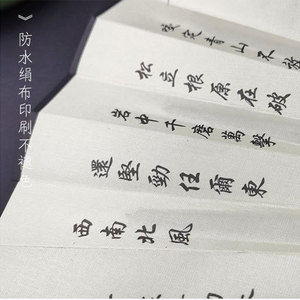 防水绢布印刷不褪色
定青山不
松立根原在破
岩中千磨萬擊
還堅勁任爾東
西南北風